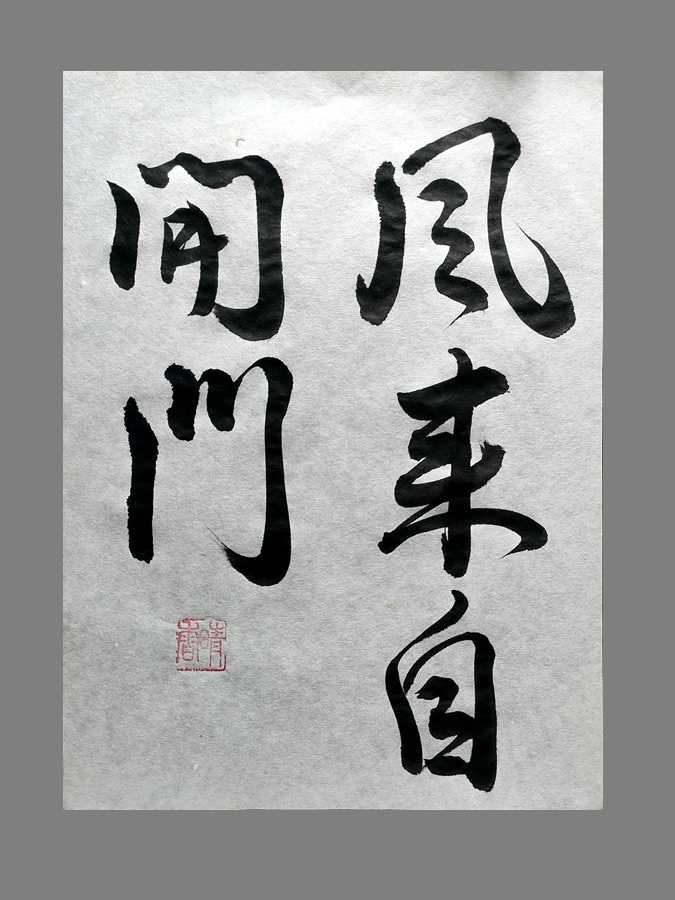 风来自
開門